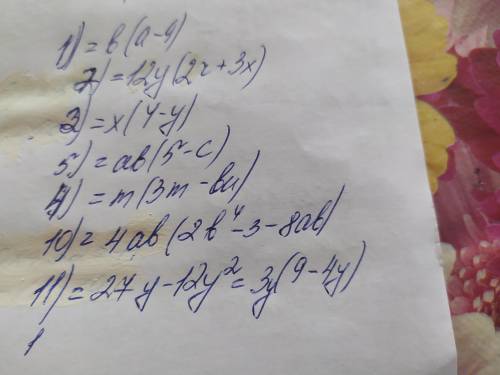 1) = b(a-9)
2) = 12y(2x+3x)
3) = x(4-y)
5) = ab(5-c)
9) = m(3m-bn)
10) = 4ab(2b⁴-3-8ab)
11) = 27y-12y² = 3y(9-4y)
1